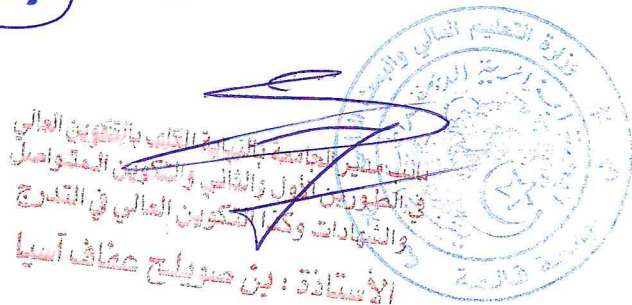 نائب مدير الجامعة بالنيابة المكلف بالتكوين العالي
في الطورين الأول والثاني والتكوين المتواصل
والشهادات وكذا التكوين العالي في التدرج
الأستاذة : بن صويلح عفاف آسيا
وزارة التعليم العالي والبحث